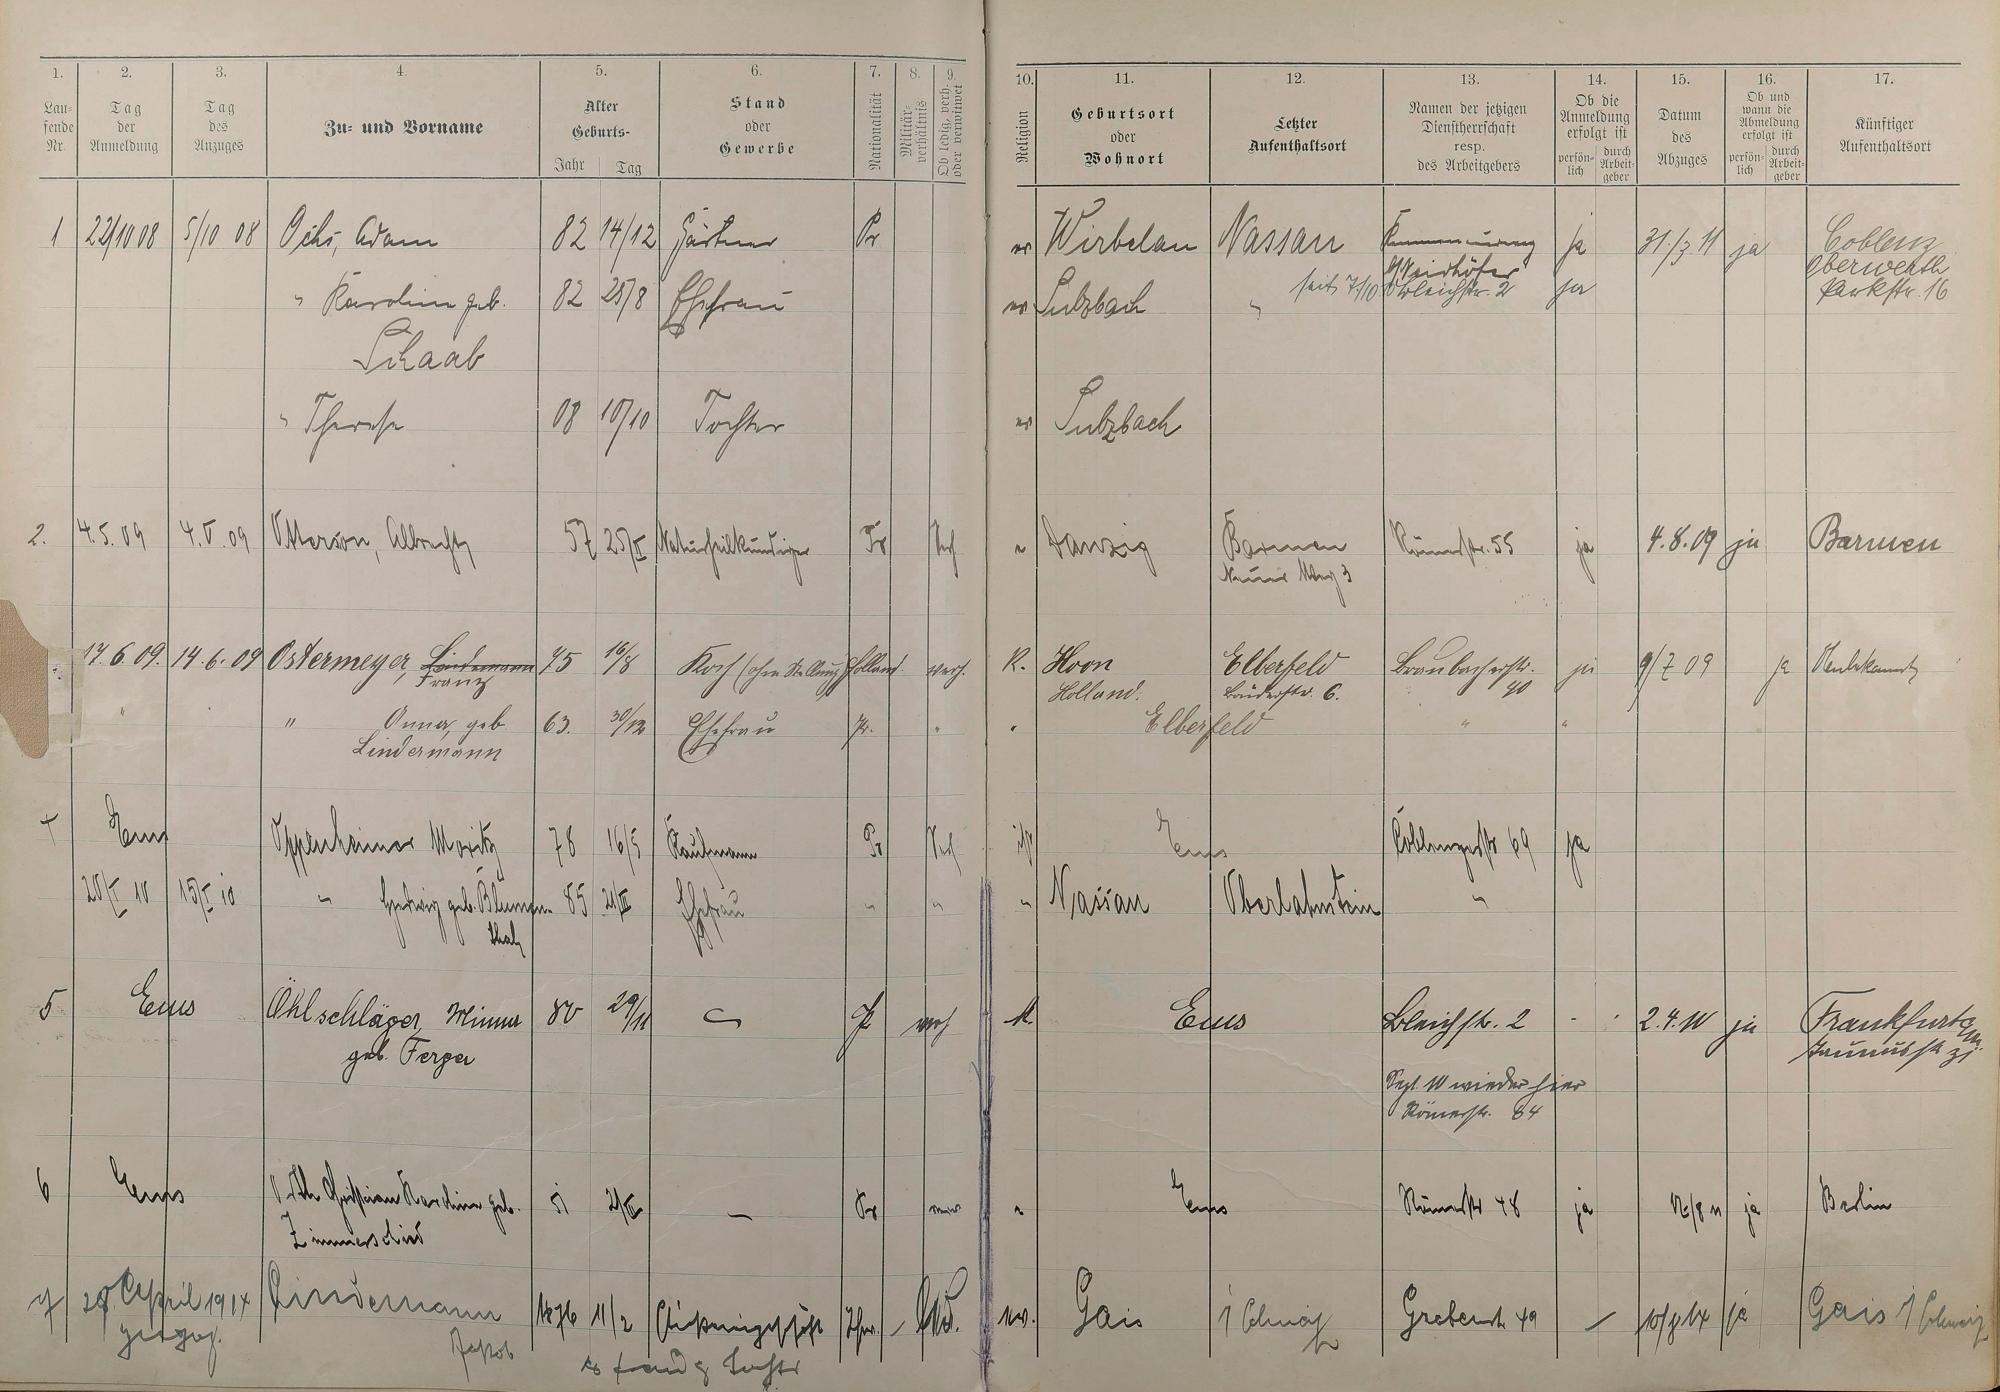 1. 2. 3. 4. 5. 6. 7. 8. 9. 10. 11. 12. 13. 14. 15. 16. 17.
Lau-
fende
Nr.
Tag
der
Anmeldung
Tag
des
Anzuges
Zu- und Vorname
Alter
Geburts-
Jahr Tag
Stand
oder
Gewerbe
Nationalität
Militär-
verhältnis
Ob ledig, verh.
oder verwitwet
Religion
Geburtsort
oder
Wohnort
Letzter
Aufenthaltsort
Namen der jetzigen
Dienstherrschaft
resp.
des Arbeitgebers
Ob die
Anmeldung
erfolgt ist
persön-
lich
durch
Arbeit-
geber
Datum
des
Abzuges
Ob und
wann die
Abmeldung
erfolgt ist
persön-
lich
durch
Arbeit-
geber
Künftiger
Aufenthaltsort
1 22/10 08 5/10 08 Ochs, Adam 82 14/12 Gärtner Pr ev Wirbelau Nassau ja 31./3. 11 ja Coblenz
Oberwerth
Parkstr. 16
" Karoline geb. 82 25/8 Ehefrau ev Sulzbach " seit 7/10 Bleichstr. 2 ja
Schaab
" Therese 08 10/10 Tochter ev Sulzbach
2. 4.5.09 4.V.09 Otterson, Albrecht 57 25/II Naturheilkundiger Pr Verh " Danzig Barmen Römerstr. 55 ja 4.8.09 ja Barmen
Neuer Weg 3
17.6.09. 14.6.09 Ostermeyer, Lindemann 75 16/8 Koch (ohne Stellung) Holland. verh. K. Hoon Elberfeld Braubacherstr. ja 9/7 09 ja Unbekannt
Franz Holland. 6. 40
" " Anna, geb 63. 30/12 Ehefrau Pr. " " Elberfeld " "
Lindermann
Ems Oppenheimer Moritz 78 16/5 Kaufmann Pr Verh isr Ems Coblenzerstr 69 ja
20/I 10 15/I 10 " Hedwig geb. Blumen- 85 21/III Ehefrau " " " Nassau Oberlahnstein "
thal
5 Ems Öhlschläger, Minna 80 29/11 Pr verh K. Ems Bleichstr. 2 - 2.4.10 ja Frankfurt a/M.
geb. Ferger Taunusstr 31
Sept. 10 wieder hier
Römerstr. 84
6 Ems Christian Karoline geb. 51 21/III - Pr " Ems Römerstr 48 ja ja Berlin
Zimmerschied
7 April 1914 Lindemann 11/2 ev. Gais / Schweiz Grabenstr 49 - ja Gais / Schweiz
Jakob